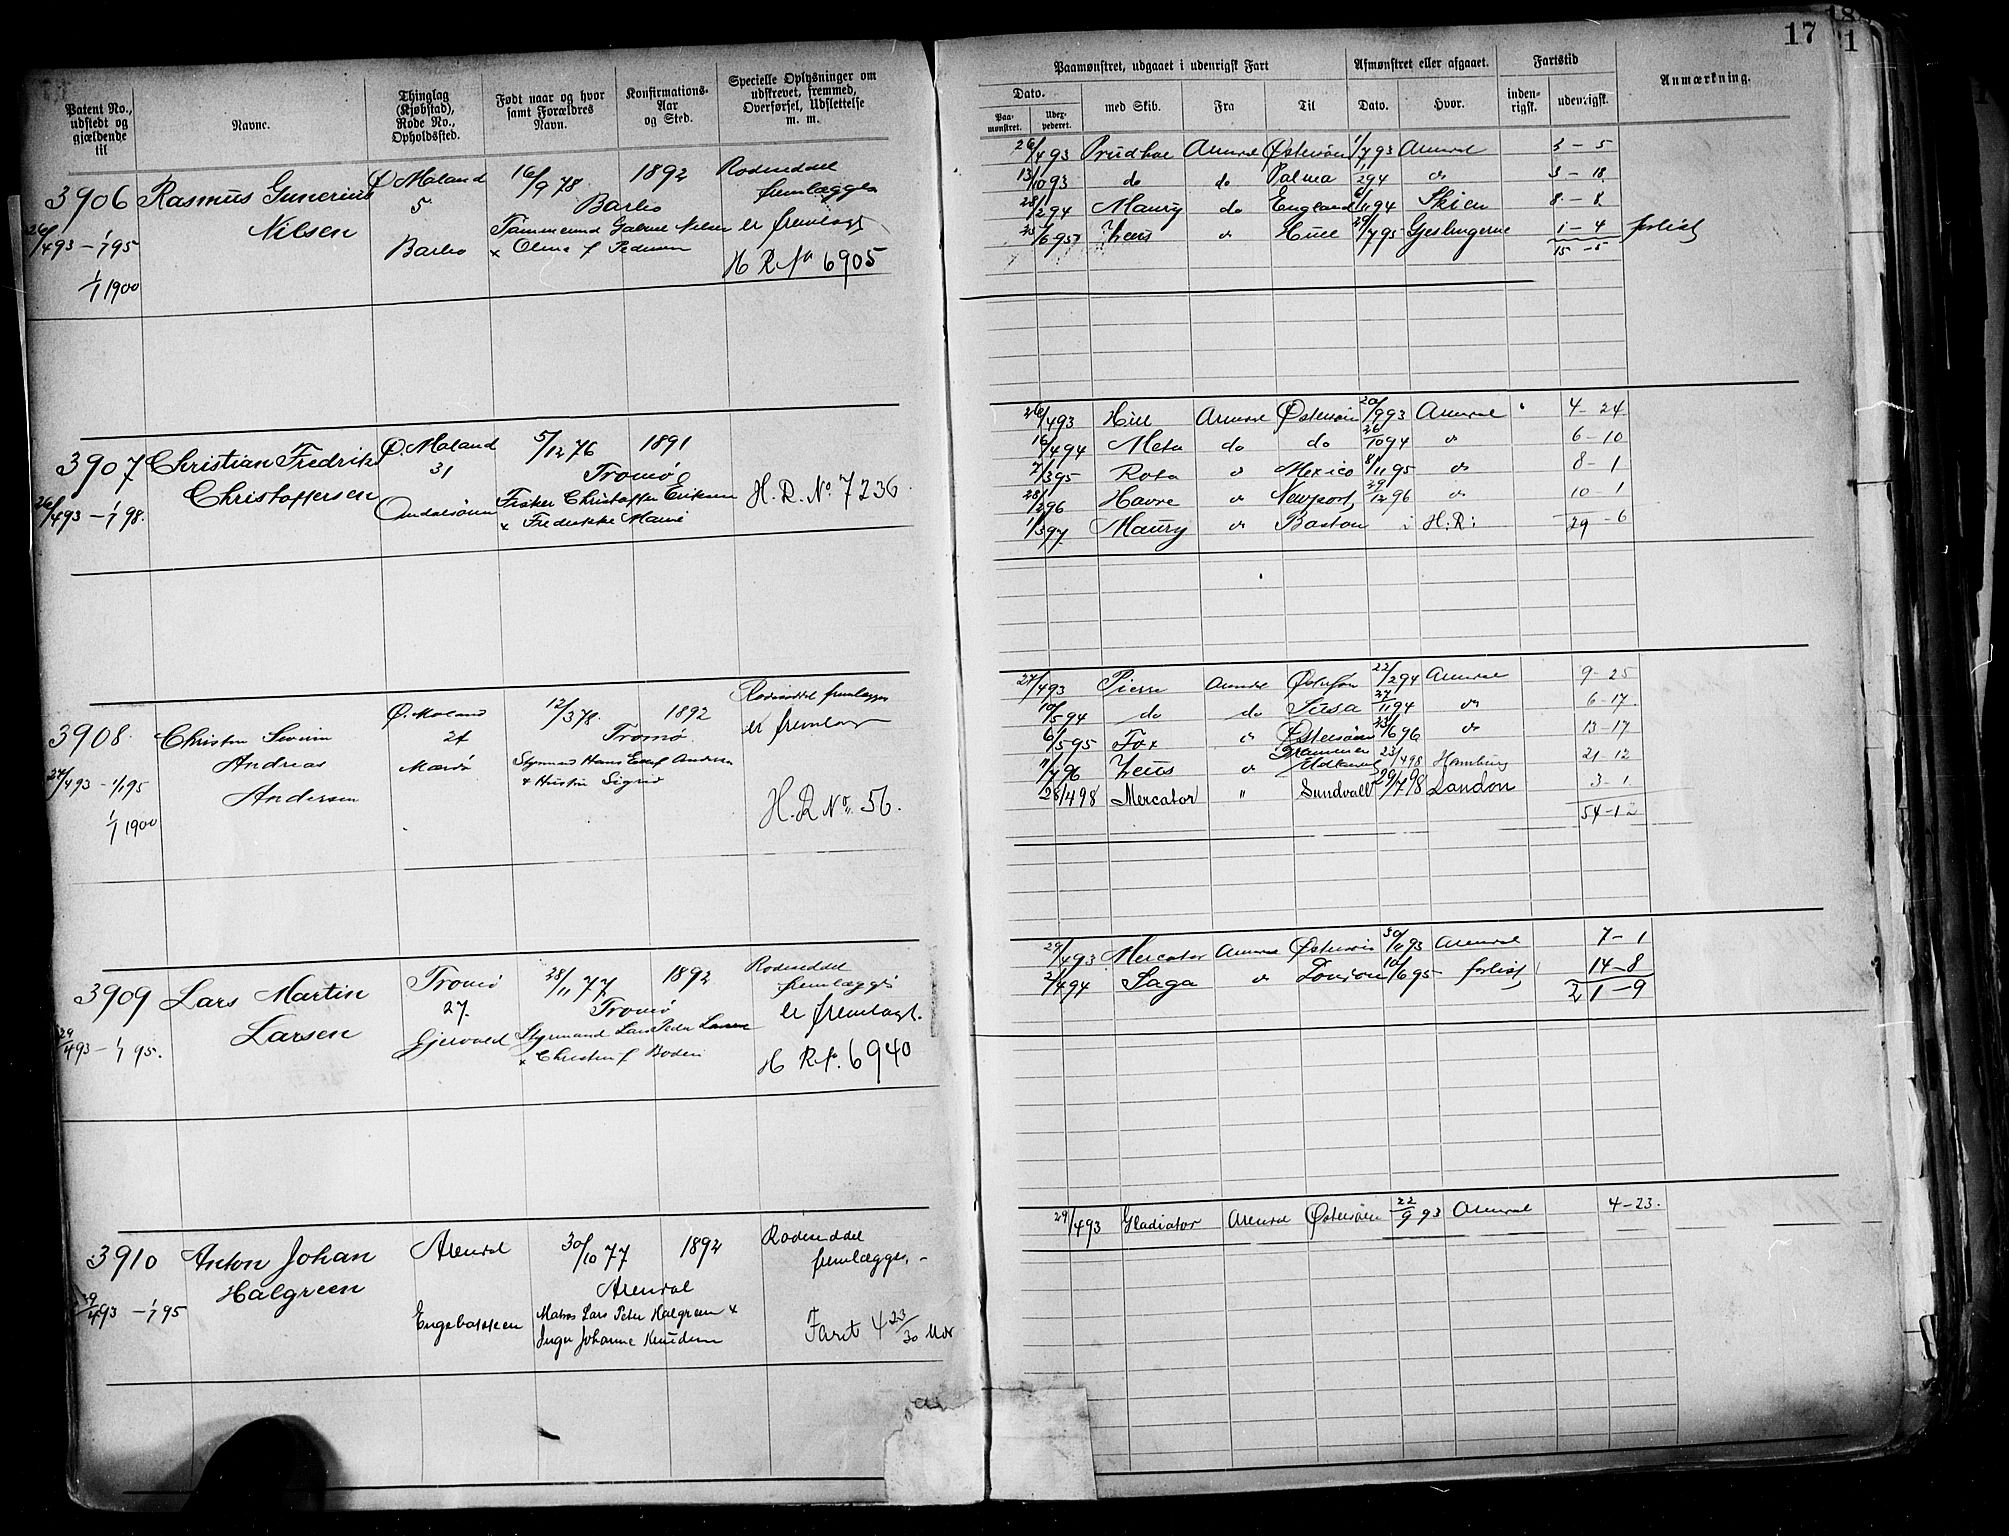 17
Patent No., udstedt og gjældende til
Navne.
Thinglag (Kjøbstad), Rode No., Opholdssted.
Født naar og hvor samt Forældres Navn.
Konfirmations-Aar og Sted.
Specielle Oplysninger om udskrevet, fremmed, Overførsel, Udslettelse m. m.
Paamønstret, udgaaet i udenrigsk Fart
Afmønstret eller afgaaet.
Fartstid
Anmærkning.
Dato.
med Skib.
Fra
Til
Dato.
Hvor.
inden-rigsk.
udenrigsk.
Paa-mønstret.
Udex-pederet.
3906 Rasmus Gunerius Ø. Moland 16/9 78 1892 Rodeseddel
Nilsen 5 Barbo fremlægges
26/4 93 – 1/1 95 Barbo Gabriel Nilsen er fremlagt
1/1 1900 x Oline f Pedersen H R No 6905
26/4 93 Prudhoe Arendal Østersøen 1/7 93 Arendal 3 – 5
13/10 93 do do Palma 1/2 94 do 3 – 18
28/2 94 Maury do England 6/11 94 Skien 8 – 8
25/6 95 Zeus do Hull 29/7 95 Gjeslingerne 1 – 4 forlist
15 – 5
3907 Christian Fredrik Ø. Moland 5/12 76 1891
Christoffersen 31 Tromø
26/4 93 – 1/1 98. Fisker Christoffer Eriksen H. R. No. 7236
x Fredrikke Marie
26/4 93 Hill Arendal Østersøen 20/9 93 Arendal 4 – 24
16/4 94 Meta do do 26/10 94 do 6 – 10
7/3 95 Rota do Mexico 8/11 95 do 8 – 1
28/2 96 Havre do Newport 29/12 96 do 10 1
1/3 97 Maury do Boston i H: R: 29 – 6
3908. Christen Severin Ø. Moland 12/3 78. 1892 Rodeseddel fremlægges
Andreas 24 Tromø er fremlagt
27/4 93 – 1/1 95 Andersen Mærdø Styrmand Hans Andersen
1/1 1900 Sigrid H. R No. 56.
27/4 93 Pierre Arendal Østersøen 22/2 94 Arendal 9 – 25
10/5 94 do do Susa 27/11 94 do 6 – 17
6/5 95 Fox do Østersøen 23/6 96 do 13 – 17
11/7 96 Zeus do 23/4 98 Hamburg 21 – 12
28/4 98 Mercator " Sundsvall 29/7 98 London 3 – 1
54 – 12
3909 Lars Martin Tromø 28/11 77 1892 Rodeseddel
Larsen 27. Tromø fremlægges
29/4 93 – 1/1 95. Gjervold Styrmand Lars Peder Larsen er fremlagt.
x Christine f Bodin H R No. 6940
29/4 93 Mercator Arendal Østersøen 30/11 93 Arendal 7 – 1
2/4 94 Saga do London 10/6 95 forlist 14 – 8
21 – 9
3910 Anton Johan Arendal 30/10 77 1892 Rodeseddel
Halgreen Arendal fremlægges. –
29/4 93 – 1/1 95 Engebakken Matros Lars Peter Halgreen x
Inger Johanne Knudsen Faret 4 23/30 Mdr
29/4 93 Gladiator Arendal Østersøen 22/9 93 Arendal 4 – 23.